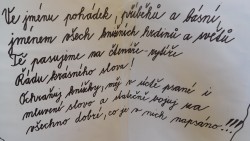 Ve jménu pohádek, příběhů a básní,
jménem všech knižních hrdinů a světů
Tě pasujeme na čtenáře - rytíře
Řádu krásného slova!
Ochraňuj knížky, měj v úctě psané i
mluvené slovo a statečně bojuj za
všechno dobré, co je v nich napsáno...!!!